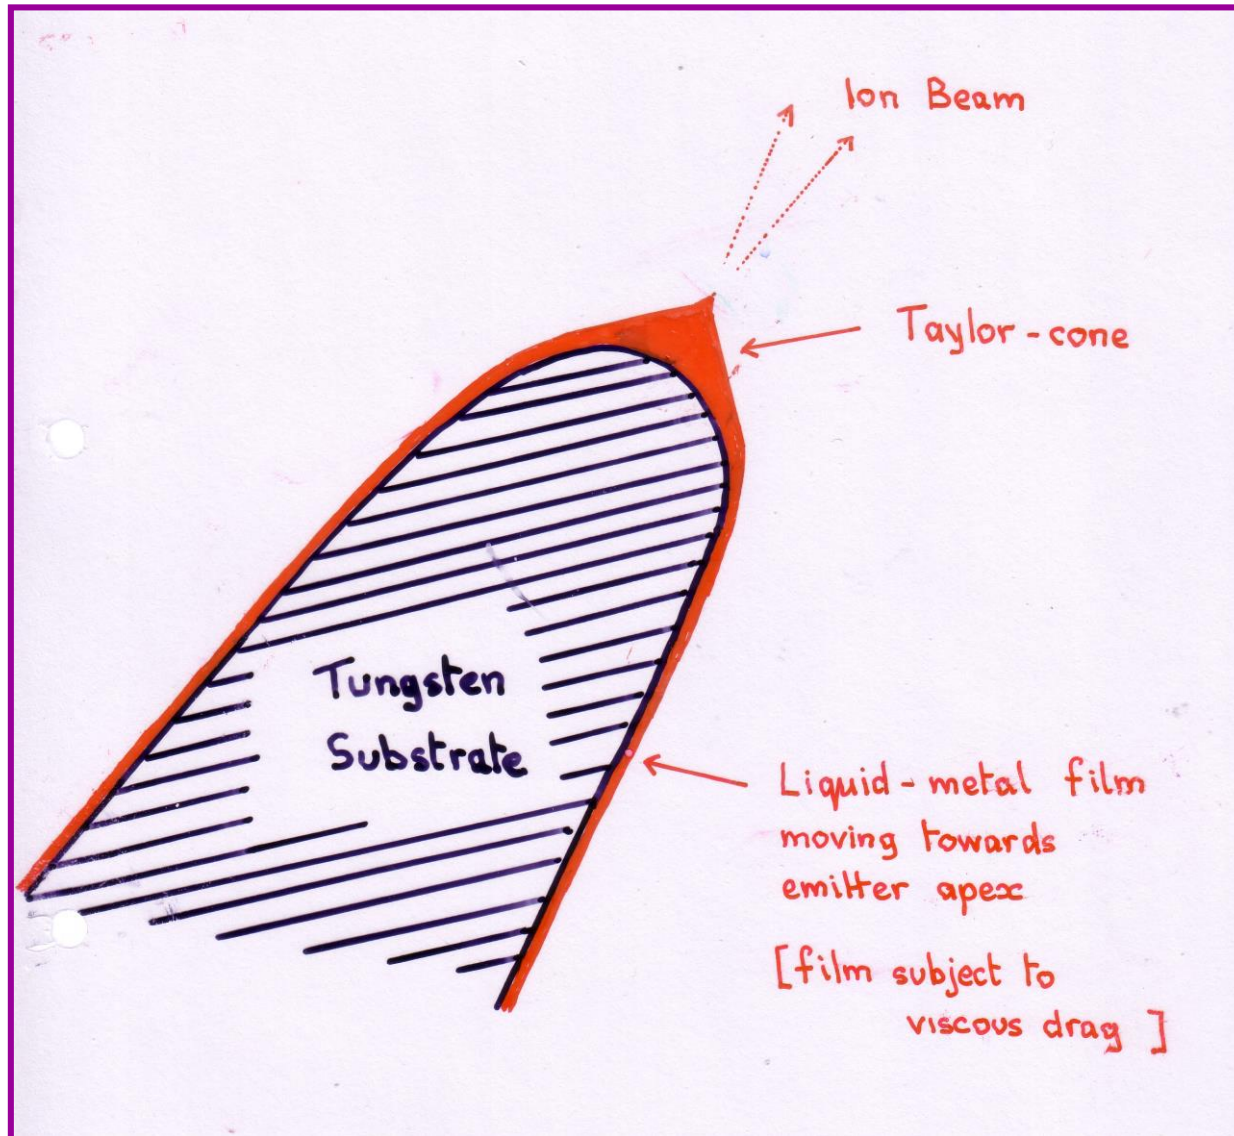 Ion Beam
Taylor-cone
Tungsten
Substrate
Liquid-metal film
moving towards
emitter apex
[film subject to
viscous drag ]